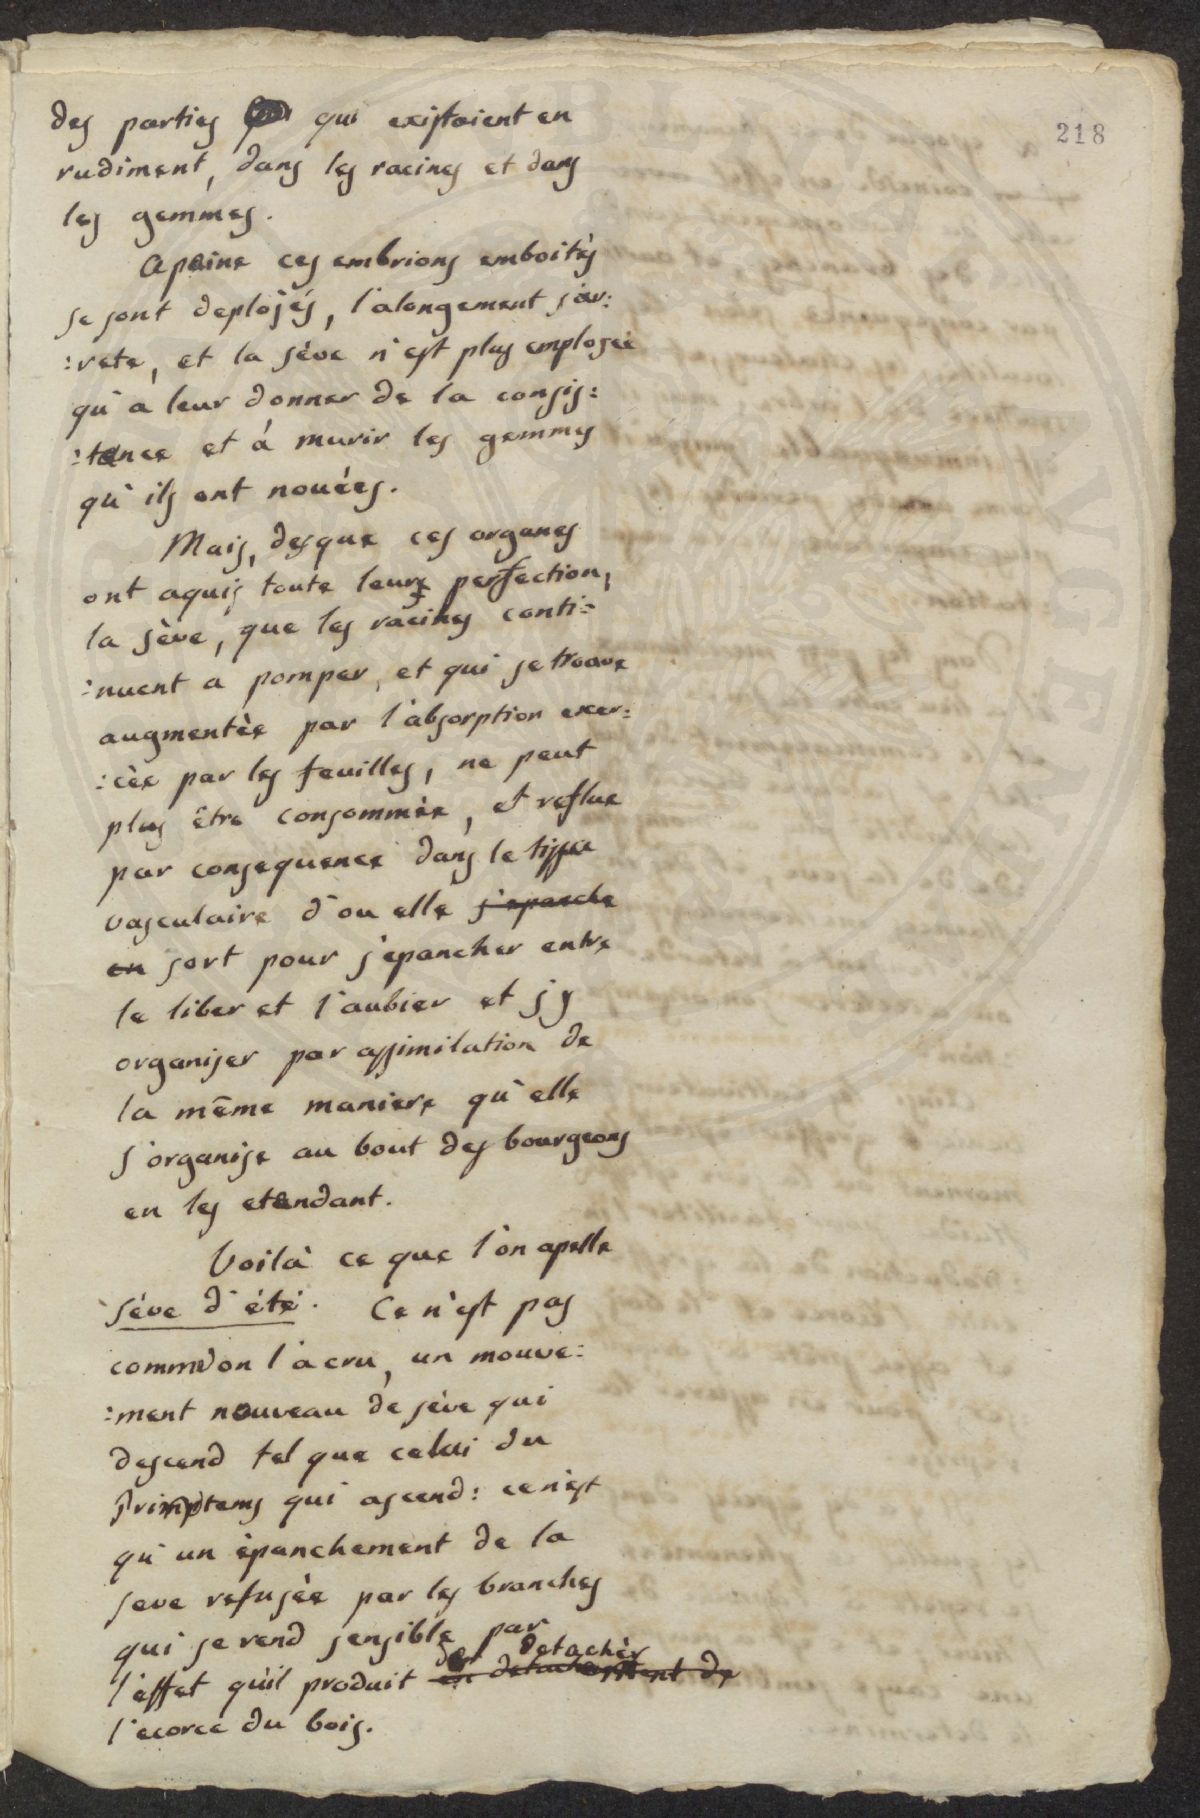 218
des parties qui existoient en
rudiment, dans les racines et dans
les gemmes.
Apeine ces embrions emboités
se sont deploïés, l'alongement s'ar:
:rete, et la sève n'est plus emploiée
qu'a leur donner de la consis:
:tance et á murir les gemmes
qu'ils ont nouées.
Mais, desque ces organes
ont aquis toute leur perfection,
la sève, que les racines conti:
:nuent a pomper, et qui se trouve
augmentèe par l'absorption exer:
:cèe par les feuilles, ne peut
plus être consommèe, et reflue
par consequence dans le tissu
vasculaire d'ou elle s'epanche
en sort pour s'epancher entre
le liber et l'aubier et s'y
organiser par assimilation de
la même maniere qu'elle
s'organise au bout des bourgeons
en les etendant.
Voilà ce que l'on apelle
sève d'été. Ce n'est pas
comme on l'a cru, un mouve:
:ment nouveau de sève qui
descend tel que celui du
Printems qui ascend: ce n'est
qu'un èpanchement de la
seve refusèe par les branches
qui se rend sensible par
de detachèr
l'effet qu'il produit en detachement de
l'ecorce du bois.